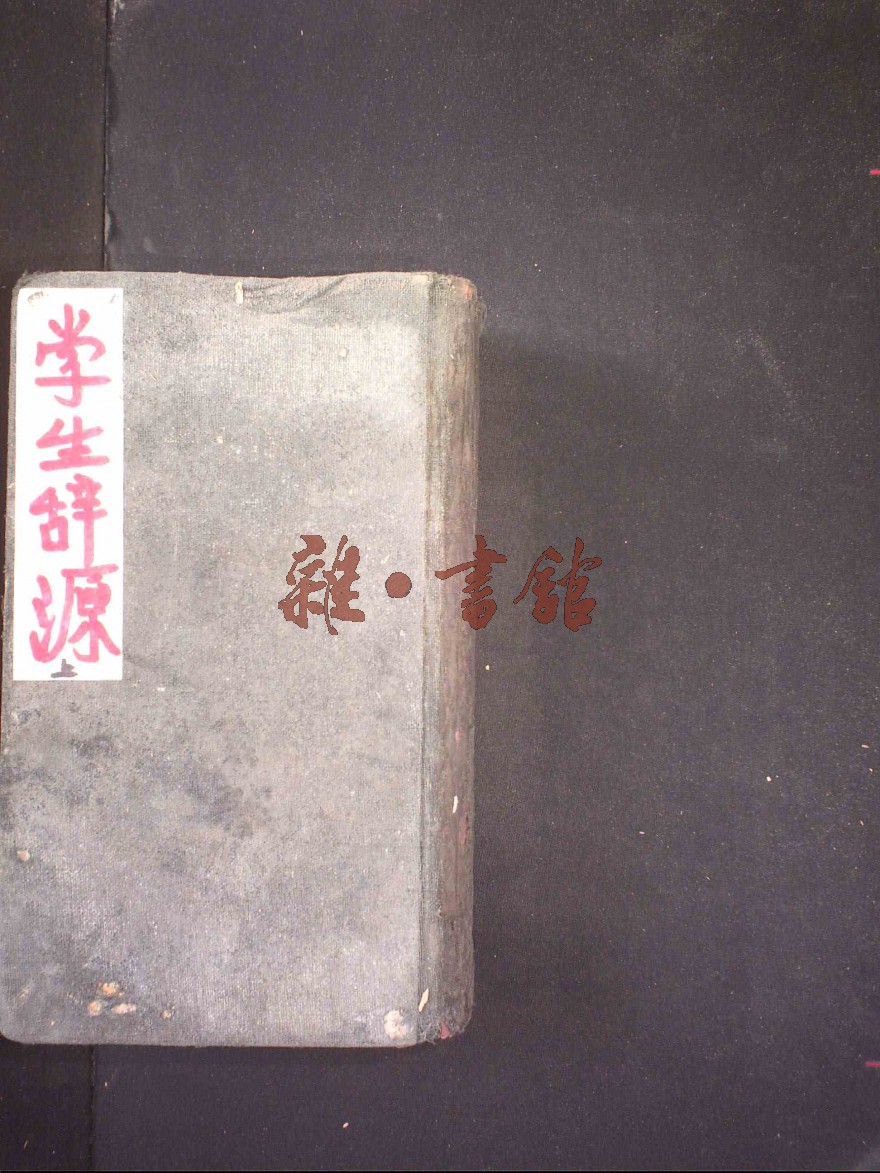 学生辞源
上
雜·書館